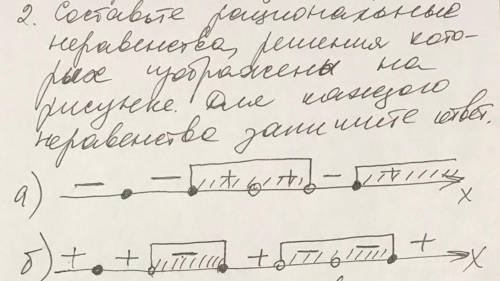 2. Составьте рациональные
неравенства, решения кото-
рых изображены на
рисунке. Для каждого
неравенства запишите ответ.
а) — — + + — + x
б) + + — + — — + x